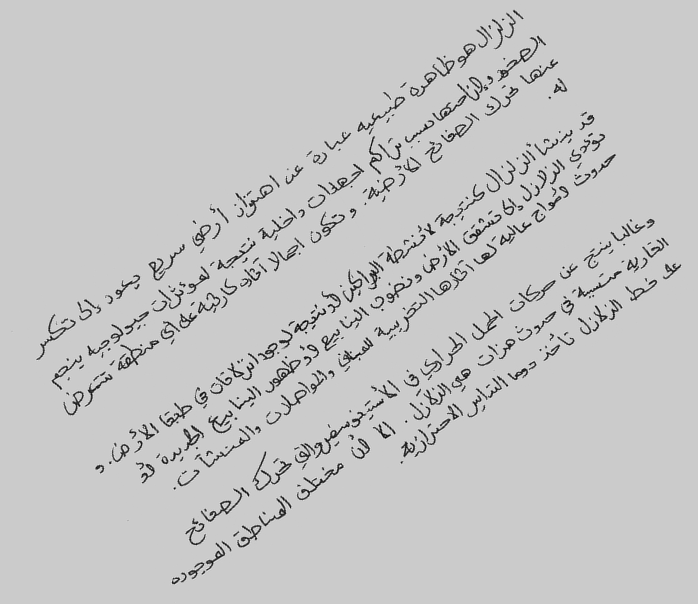 الزلزال هو ظاهرة طبيعية عبارة عن اهتزاز أرضي سريع يعود إلى تكسر
الصخور وإزاحتها بسبب تراكم اجهادات داخلية نتيجة لمؤثرات جيولوجية ينجم
عنها تحرك الصفائح الأرضية. وتكون اجمالا آثاره كارثية على أي منطقة تتعرض
له.
قد ينشأ الزلزال كنتيجة لأنشطة البراكين أو نتيجة لوجود انزلاقات في طبقا الأرض. و
تؤدي الزلازل إلى تشقق الأرض ونضوب الينابيع أو ظهور الينابيع الجديدة أو
حدوث أمواج عالية لها آثارها التخريبية المباني والمواصلات والمنشآت.
وغالبا ينتج عن حركات الحمل الحراري في الأستينوسفير والتي تحرك الصفائح
القارية متسببة في حدوث هزات هي الزلازل. الا أن مختلف المناطق الموجوده
على خط الزلازل تأخذ دوما التدابير الاحترازية.